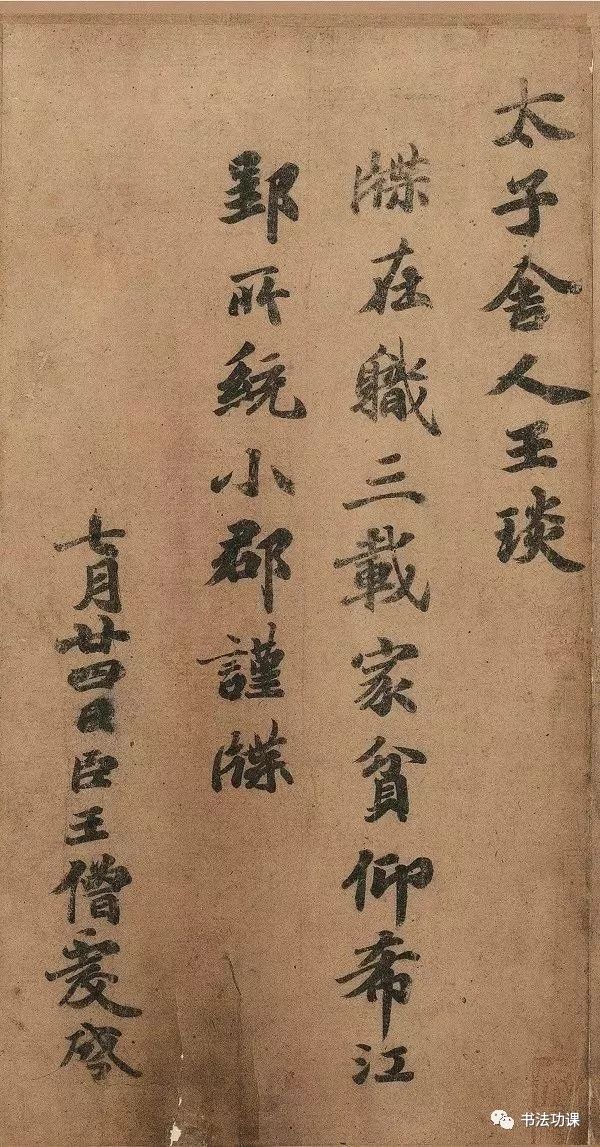 太子舍人王琰
牒在職三載家貧仰希江
郢所統小郡謹牒
七月廿四日臣王僧虔啓
书法功课